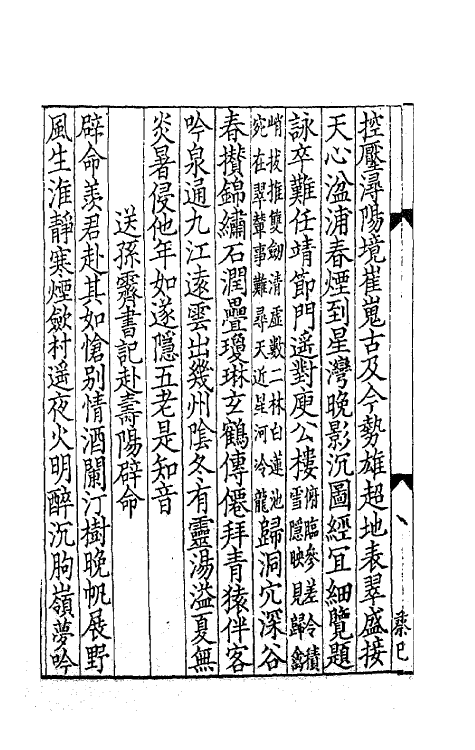 控壓潯陽境崔嵬古及今勢雄超地表翠盛接
天心湓浦春煙到星灣晚影沉圖經宜細覽題
詠卒難任靖節門遙對庾公樓俯臨參差冷積
雪隱映見歸禽
峭拔推雙劔清虛數二林白蓮池
宛在翠輦事難尋天近星河冷龍歸洞穴深谷
春攢錦繡石潤疊瓊琳玄鶴傳僊拜青猿伴客
吟泉通九江遠雲出幾州陰冬有靈湯溢夏無
炎暑侵他年如遂隱五老是知音
送孫霽書記赴壽陽辟命
辟命羨君赴其如愴别情酒闌汀樹晚帆展野
風生淮靜寒煙斂村遥夜火明醉沉朐嶺夢吟